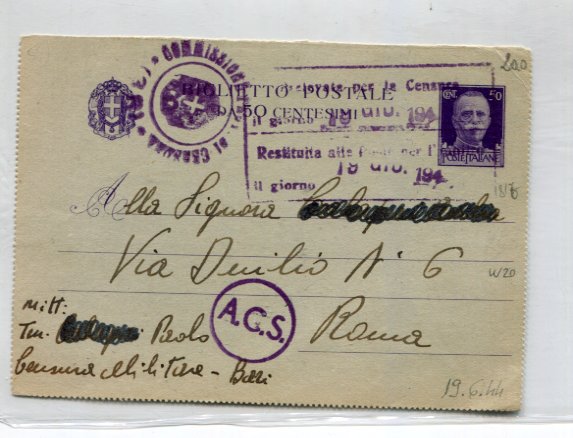 COMMISSIONE
DI CENSURA
BIGLIETTO POSTALE
DA 50 CENTESIMI
per la Censura
il giorno 19 GIU. 194
Restituita alle Poste per l'
il giorno 19 GIU. 194
CENT. 50
POSTE ITALIANE
200
Alla Signora
187b
Via Duilio N° 6
W20
A.C.S.
Roma
mitt:
Ten. Paolo
Censura Militare - Bari
19.6.44